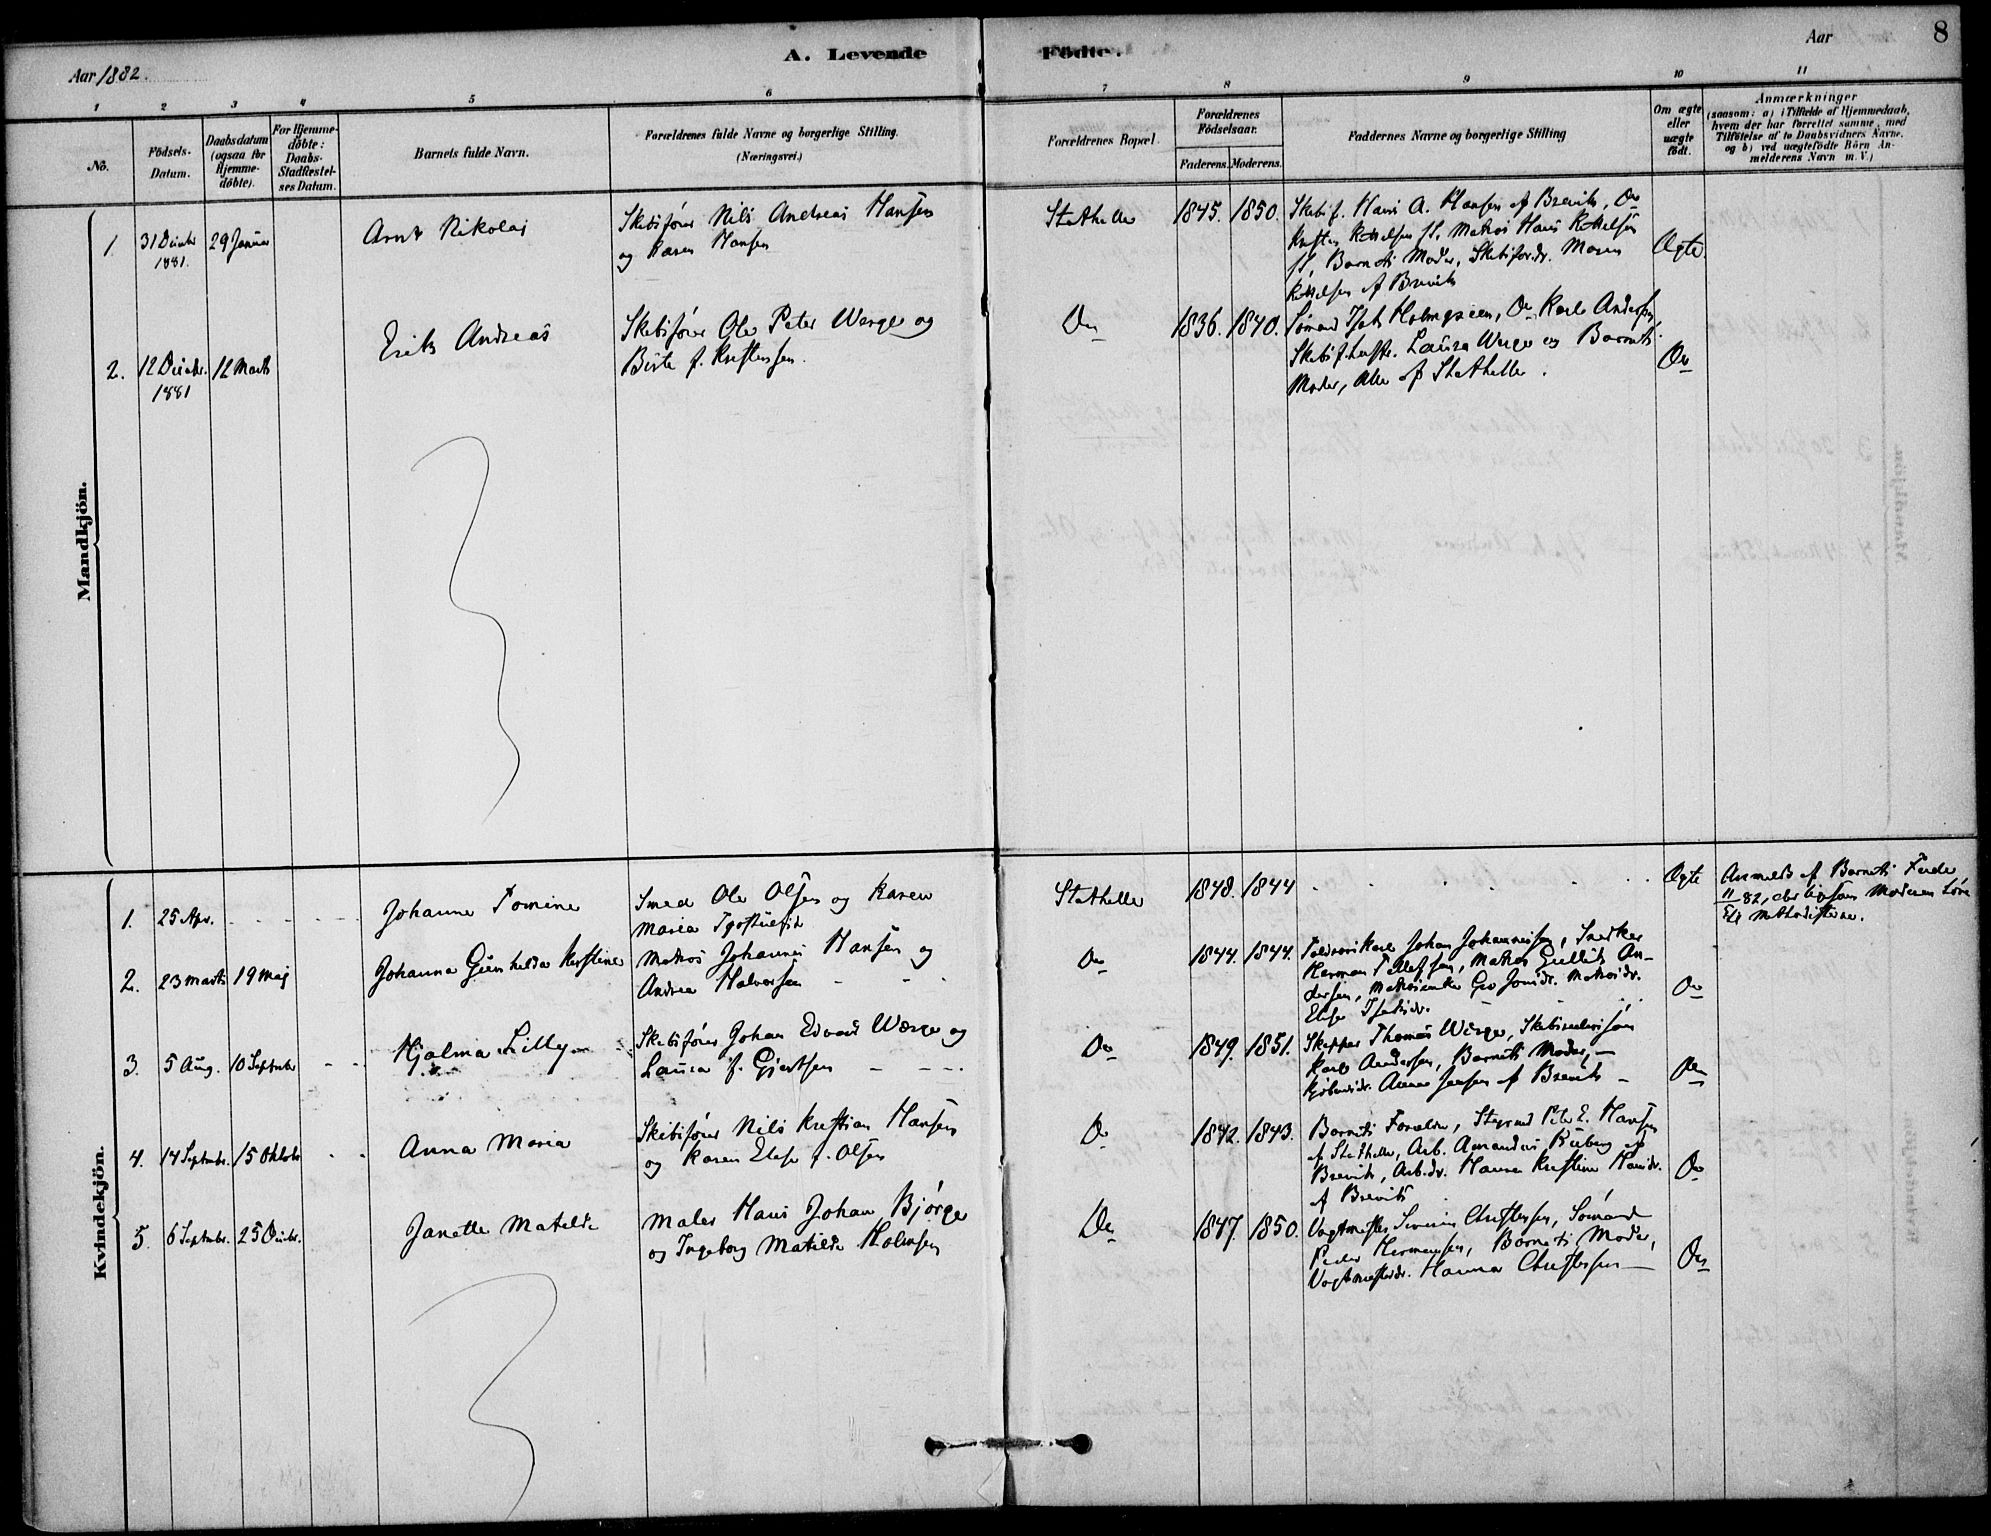 A. Levende
Födte.
Aar
8
Aar 1882.
1
2
3
4
5
6
7
8
9
10
11
No.
Födsels-
Datum.
Daabsdatum
(ogsaa for
Hjemme-
döbte).
For Hjemme-
döbte:
Daabs-
Stadfæstel-
ses Datum.
Barnets fulde Navn.
Forældrenes fulde Navne og borgerlige Stilling.
(Næringsvei.)
Forældrenes Bopæl.
Forældrenes
Födselsaar.
Faderens.
Moderens.
Faddernes Navne og borgerlige Stilling
Om ægte
eller
uægte
födt.
Anmærkninger
(saasom: a) i Tilfælde af Hjemmedaab,
hvem der har forrettet samme, med
Tilföielse af to Daabsvidners Navne,
og b) ved uægtefödte Börn An-
melderens Navn m. V.)
Mandkjön.
1.
31 Decbr
1881.
29 Januar
Arnt Nikolai
Skibsfører Nils Andreas Hansen
og Karen Hansen
Stathelle
1845.
1850.
Skibsf. Hans A. Hansen af Brevik, Do
Kittelsen St. Matros Hans Kittelsen
St, Barnets Moder, Skibsfdr. Maren
Kittelsen af Brevik
Ægte
2.
12 Decbr.
1881
12 Marts
Erik Andreas
Skibsfører Ole Peter Werge og
Birte f. Kristensen.
Do
1836.
1840.
Sømand Isak Holmgreen, Do Karl Andersen,
Skibsf.hustr. Laura Werge og Barnets
Moder, alle af Stathelle.
Do
Kvindekjön.
1.
25 Apr.
Johanne Tomine
Smed Ole Olsen og Karen
Maria
Stathelle
1848.
1844
Ægte
Anmeldt af Barnets Fader
11/82, der ligesom Moderen
Methodisterne.
2.
23 Marts
19 Maj
Johanna Gunhilda Kirstine
Matros Johannes Hansen og
Andrea Halvorsen
Do
1844.
1844.
Johan Johannessen, Snedker
Herman Tellefsen, Matros Gullik An-
dersen, Matrosenke Jonsdr. Matrosdr.
Elise Isaksdr.
Do
3.
5 Aug.
10 Septembr
Hjalma Lilly
Skibsfører Johan Edvard Werge og
Laura f. Gjertsen
Do
1849.
1851.
Skipper Thomas Werge,
Karl Andersen, Barnets Moder,
Anna Jensen af Brevik
Do
4.
14 Septembr.
15 Oktobr
Anna Maria
Skibsfører Nils Kristian Hansen
og Karen Elise f. Olsen
Do
1842.
1843.
Barnets Forældre, Styrmd Peter E. Hansen
af Stathelle, Arb. Amandus Ruberg af
Brevik, Arb.dr. Hanna Kristine Hansdr.
af Brevik
Do
5.
6 Septembr.
25 Decbr.
Janette Matilde
Maler Hans Johan Bjørge
og Ingeborg Matilde Holmsen
Do
1847.
1850.
Vagtmester Severin Christensen, Sømand
Peder Hermansen, Barnets Moder,
Vagtmesterdr. Hanna Christensen
Do